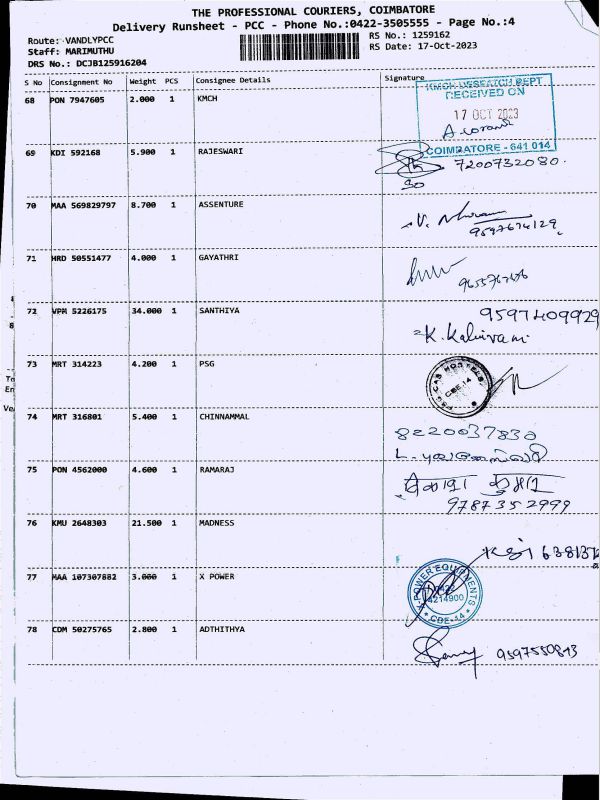 THE PROFESSIONAL COURIERS, COIMBATORE
Delivery Runsheet - PCC - Phone No.:0422-3505555 - Page No.:4
Route: VANDLYPCC RS No.: 1259162
Staff: MARIMUTHU RS Date: 17-Oct-2023
DRS No.: DCJB125916204
S No Consignment No Weight PCS Consignee Details Signature
68 PON 7947605 2.000 1 KMCH
KMCH DESPATCH DEPT
RECEIVED ON
17 OCT 2023
COIMBATORE - 641 014
69 KDI 592168 5.900 1 RAJESWARI
7200732080.
70 MAA 569829797 8.700 1 ASSENTURE
9597674129
71 HRD 50551477 4.000 1 GAYATHRI
72 VPM 5226175 34.000 1 SANTHIYA
9597409929
K. Kalaivani
73 MRT 314223 4.200 1 PSG
PSG CAS HOSTELS
CBE-14
74 MRT 316801 5.400 1 CHINNAMMAL
8220037830
75 PON 4562000 4.600 1 RAMARAJ
9787352999
76 KMU 2648303 21.500 1 MADNESS
77 MAA 107307882 3.000 1 X POWER
X-POWER EQUIPMENTS
4214900
CBE-14
78 CDM 50275765 2.800 1 ADTHITHYA
9597550843